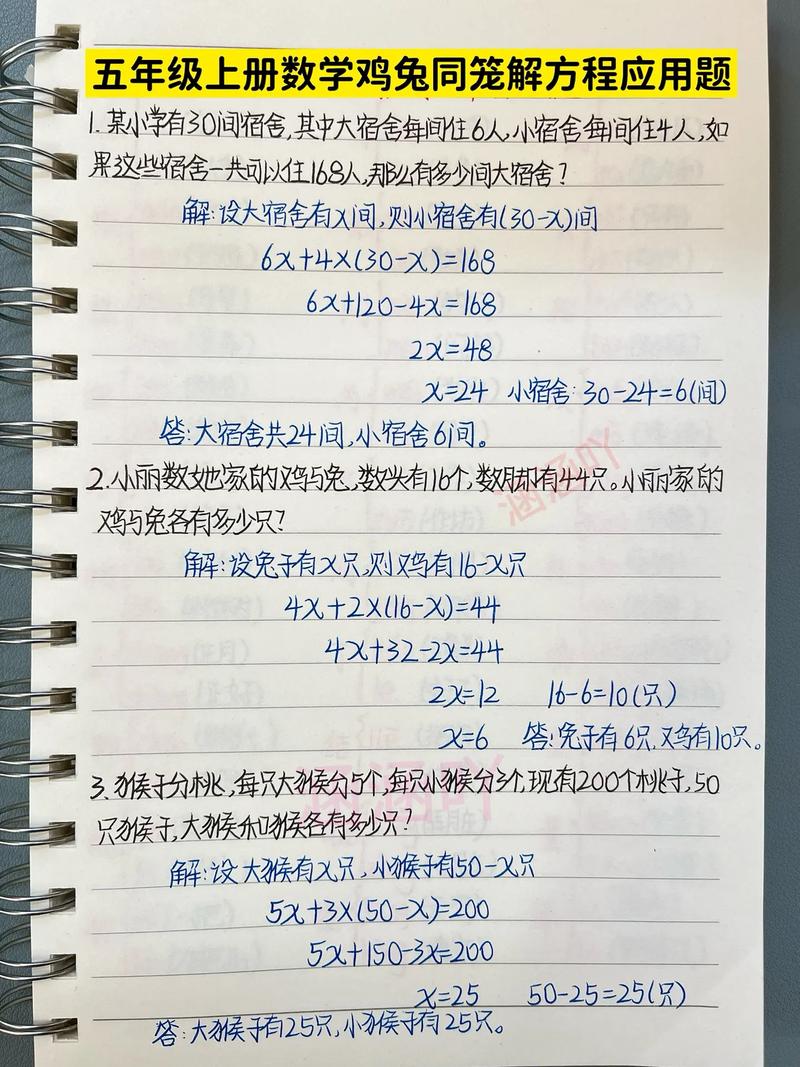 五年级上册数学鸡兔同笼解方程应用题
1. 某小学有30间宿舍,其中大宿舍每间住6人,小宿舍每间住4人,如
果这些宿舍一共可以住168人,那么有多少间大宿舍?
解:设大宿舍有x间,则小宿舍有(30-x)间
6x+4×(30-x)=168
6x+120-4x=168
2x=48
x=24 小宿舍:30-24=6(间)
答:大宿舍共24间,小宿舍6间。
2. 小丽数她家的鸡与兔,数头有16个,数脚有44只。小丽家的
鸡与兔各有多少只?
涵涵吖
解:设兔子有x只,则鸡有16-x只
4x+2×(16-x)=44
4x+32-2x=44
2x=12 16-6=10(只)
x=6 答:兔子有6只,鸡有10只。
3. 猴子分桃,每只大猴分5个,每只小猴分3个,现有200个桃子,50
只猴子,大猴和小猴各有多少只?
涵涵吖
解:设大猴有x只,小猴子有50-x只
5x+3×(50-x)=200
5x+150-3x=200
x=25 50-25=25(只)
答:大猴子有25只,小猴子有25只。